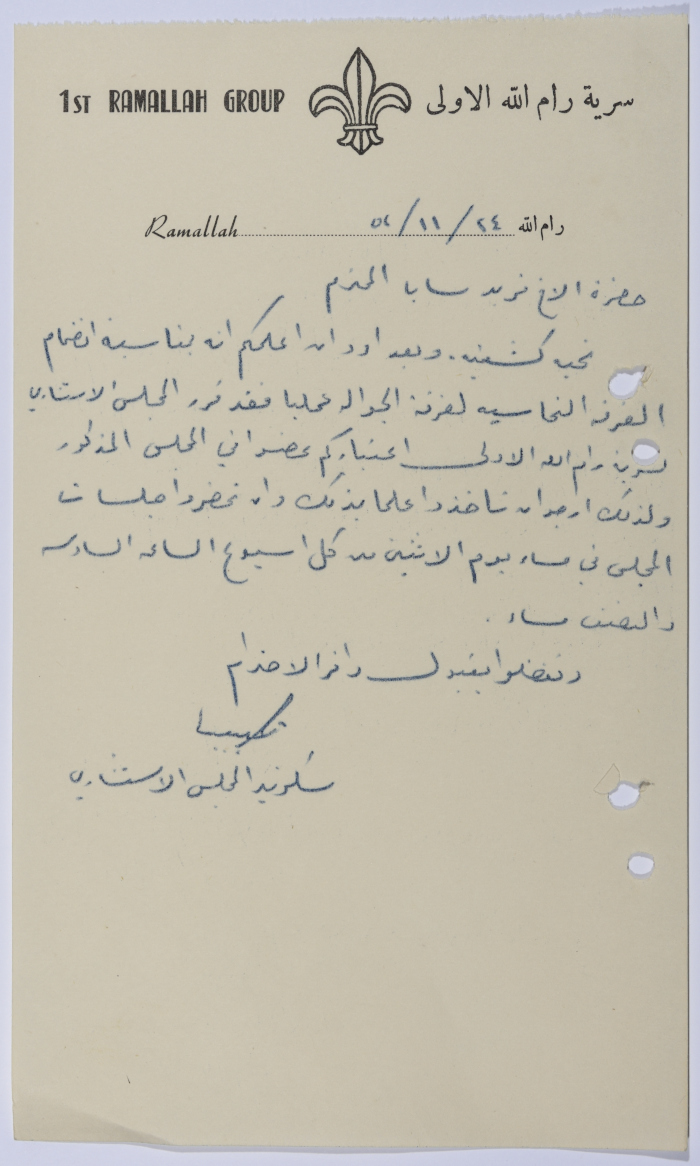 1ST RAMALLAH GROUP سرية رام الله الاولى
Ramallah ٥٤/١١/٢٤ رام الله
حضرة الاخ فريد سابا المحترم
تحية كشفية. وبعد اود ان اعلمكم انه بمناسبة انضمام
الفرقة النحاسية لفرقة الجوالة عمليا فقد قرر المجلس الاستشاري
لسرية رام الله الاولى اعتباركم عضوا في المجلس المذكور
ولذلك ارجو ان تأخذوا علما بذلك وان تحضروا جلسات
المجلس في مساء يوم الاثنين من كل اسبوع الساعة السادسة
والنصف مساء .
وتفضلوا بقبول وافر الاحترام
سكرتير المجلس الاستشاري